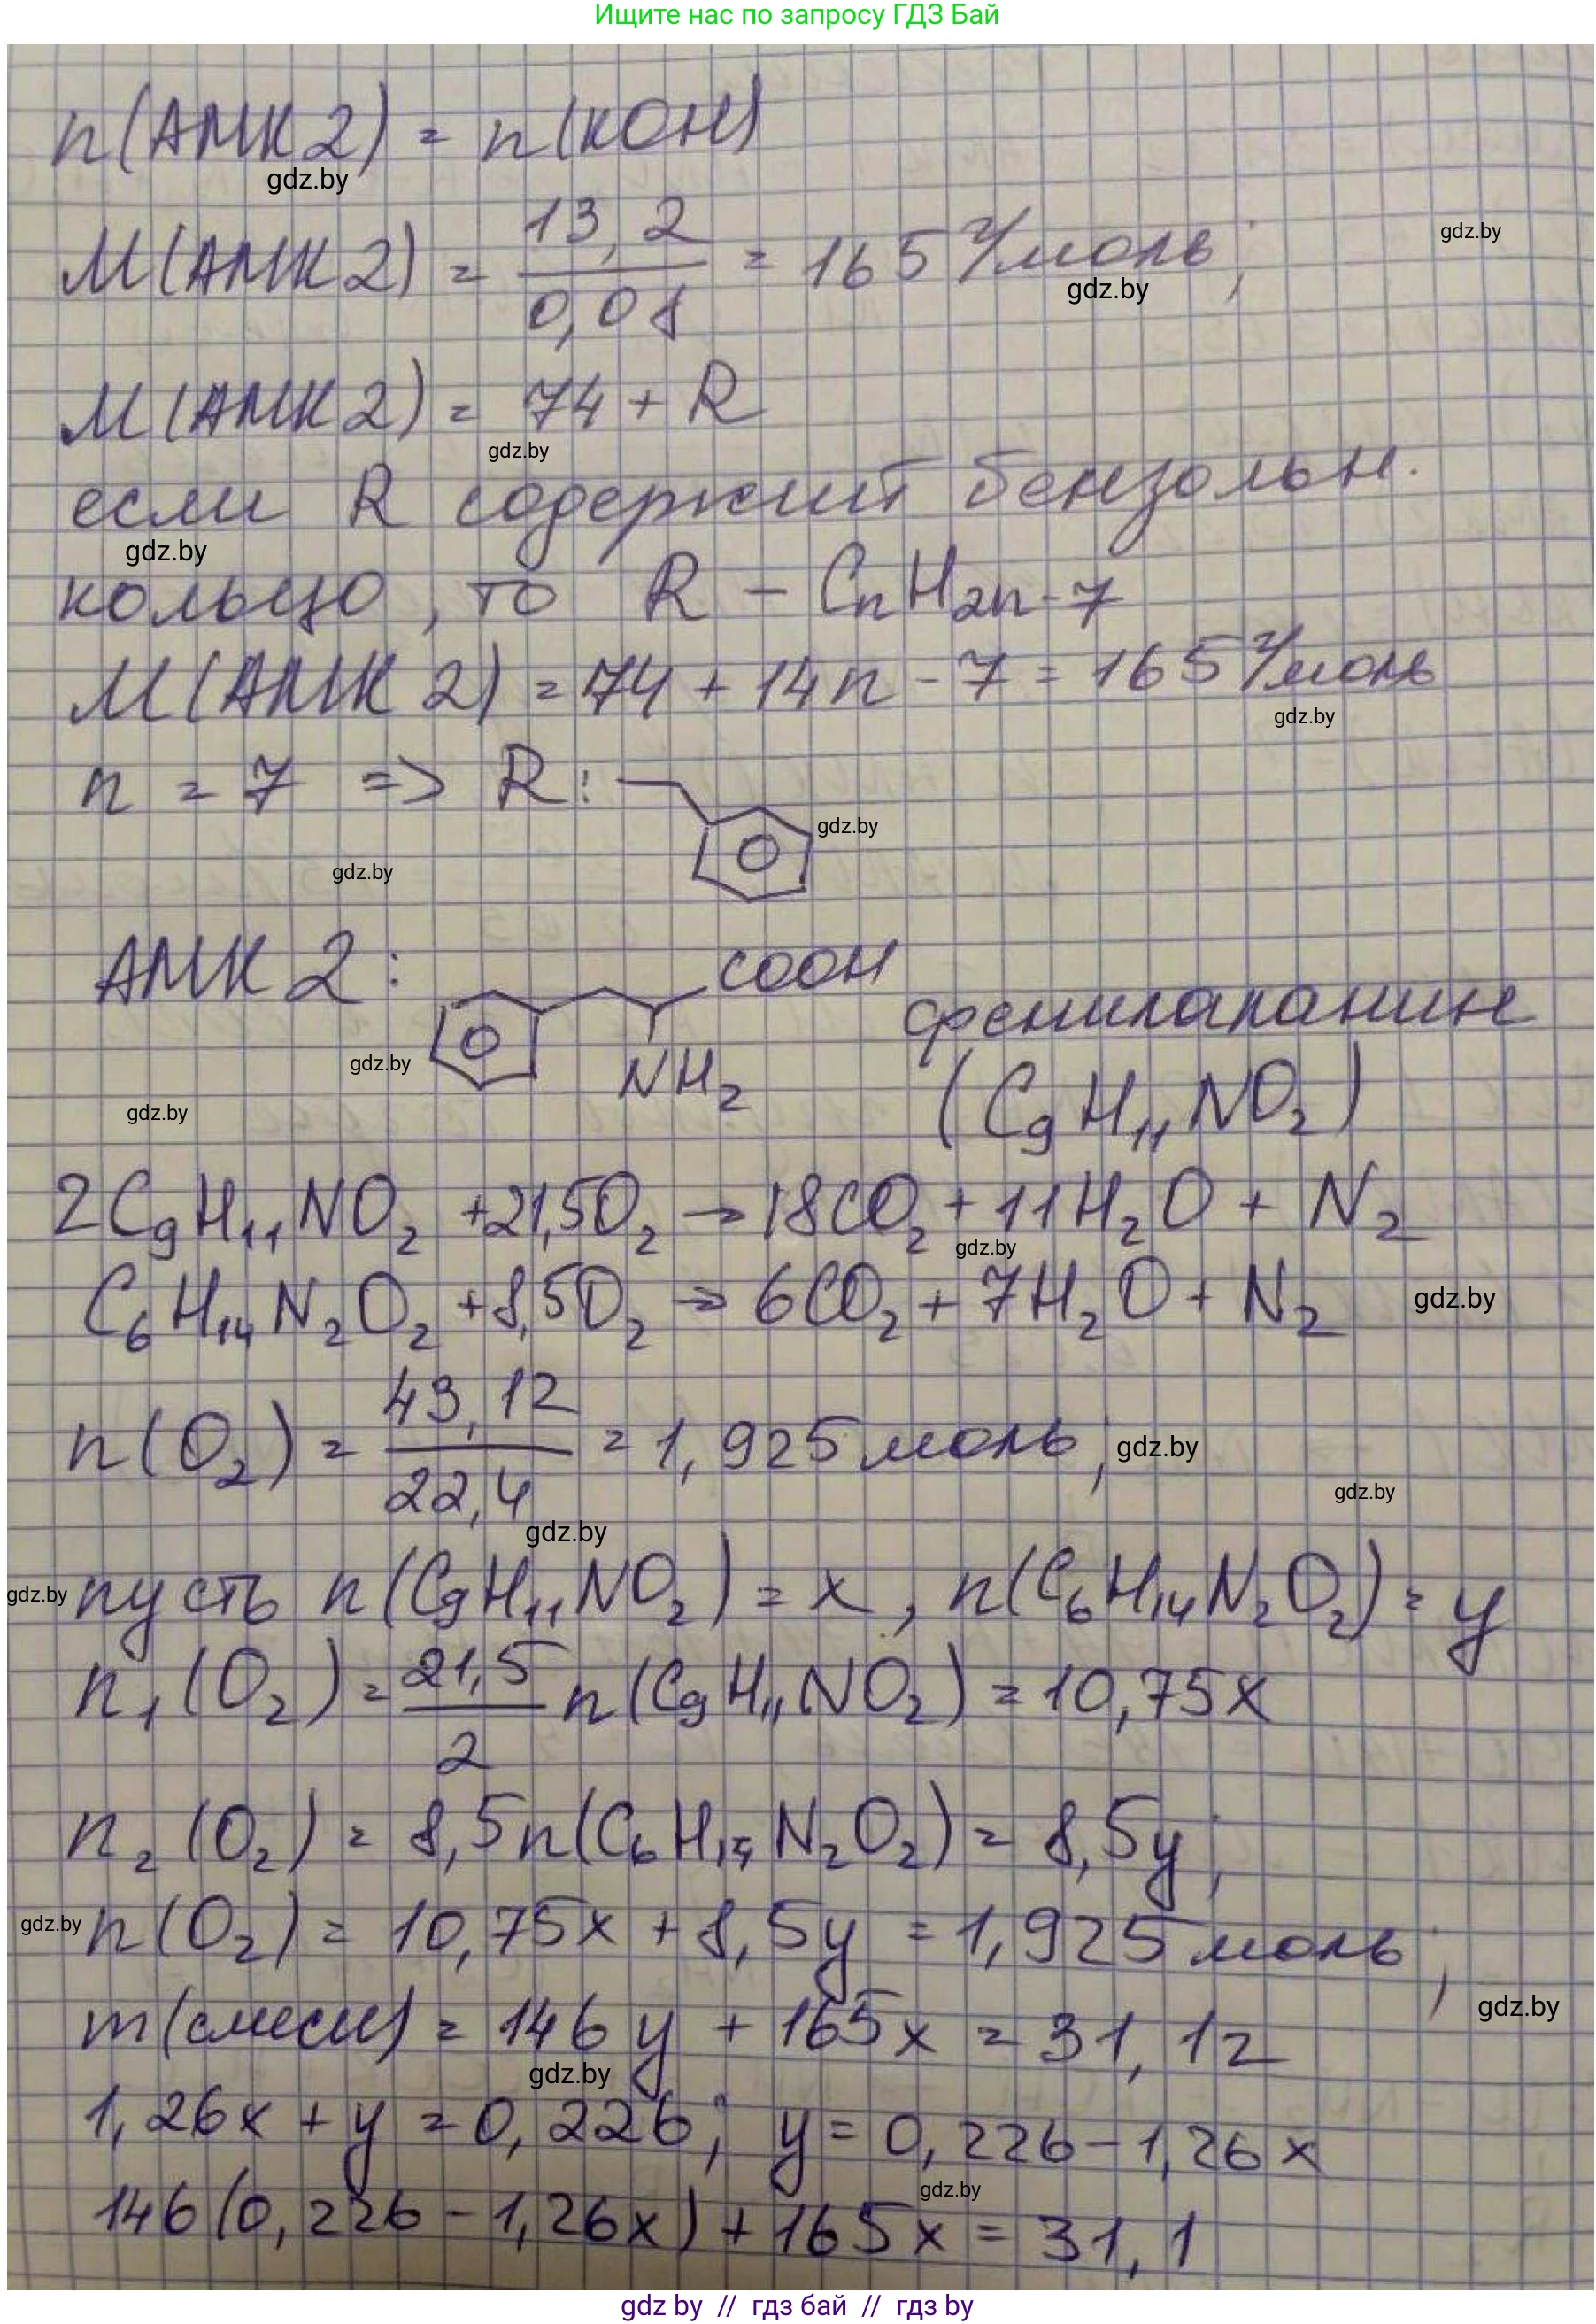 Ищите нас по запросу ГДЗ Бай
n(АМК 2) = n(KOH)
gdz.by
M(АМК 2) = 13,2 / 0,08 = 165 г/моль;
gdz.by
gdz.by
M(АМК 2) = 74 + R
gdz.by
если R содержит бензольн.
gdz.by
кольцо, то R – CnH2n-7
M(АМК 2) = 74 + 14n - 7 = 165 г/моль
gdz.by
n = 7 => R:
gdz.by
gdz.by
АМК 2: COOH
NH2
фенилаланин
gdz.by
(C9H11NO2)
gdz.by
2C9H11NO2 + 21,5O2 → 18CO2 + 11H2O + N2
gdz.by
C6H14N2O2 + 8,5O2 → 6CO2 + 7H2O + N2
gdz.by
n(O2) = 43,12 / 22,4 = 1,925 моль;
gdz.by
gdz.by
gdz.by
gdz.by
пусть n(C9H11NO2) = x, n(C6H14N2O2) = y
n1(O2) = 21,5 / 2 n(C9H11NO2) = 10,75x
n2(O2) = 8,5n(C6H14N2O2) = 8,5y;
gdz.by
n(O2) = 10,75x + 8,5y = 1,925 моль;
gdz.by
m(смеси) = 146y + 165x = 31,12
gdz.by
1,26x + y = 0,226; y = 0,226 - 1,26x
gdz.by
146(0,226 - 1,26x) + 165x = 31,1
gdz by // гдз бай // гдз by